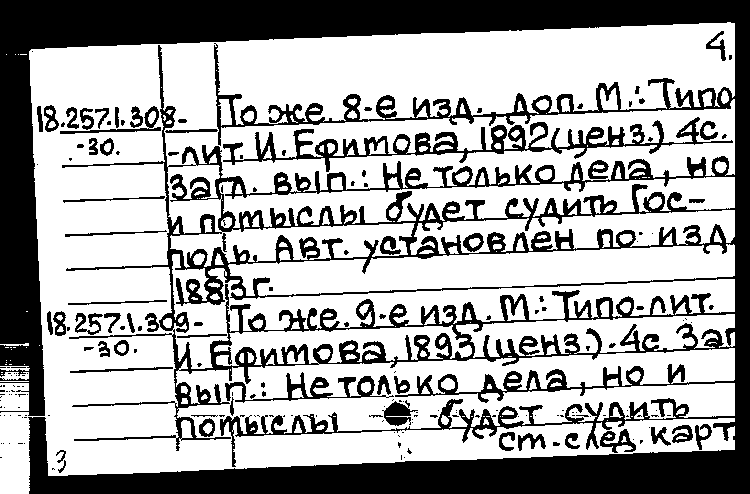 4.
18.257.1.308- То же. 8-е изд., доп. М.: Типо-
-30. -лит. И. Ефимова, 1892(ценз.) 4с.
Загл. вып.: Не только дела, но
и помыслы будет судить Гос-
подь. Авт. установлен по изд.
1883г.
18.257.1.309- То же. 9-е изд. М.: Типо-лит.
-30. И. Ефимова, 1893(ценз.).4с. Заг
вып.: Не только дела, но и
помыслы будет судить
см.след.карт.
3